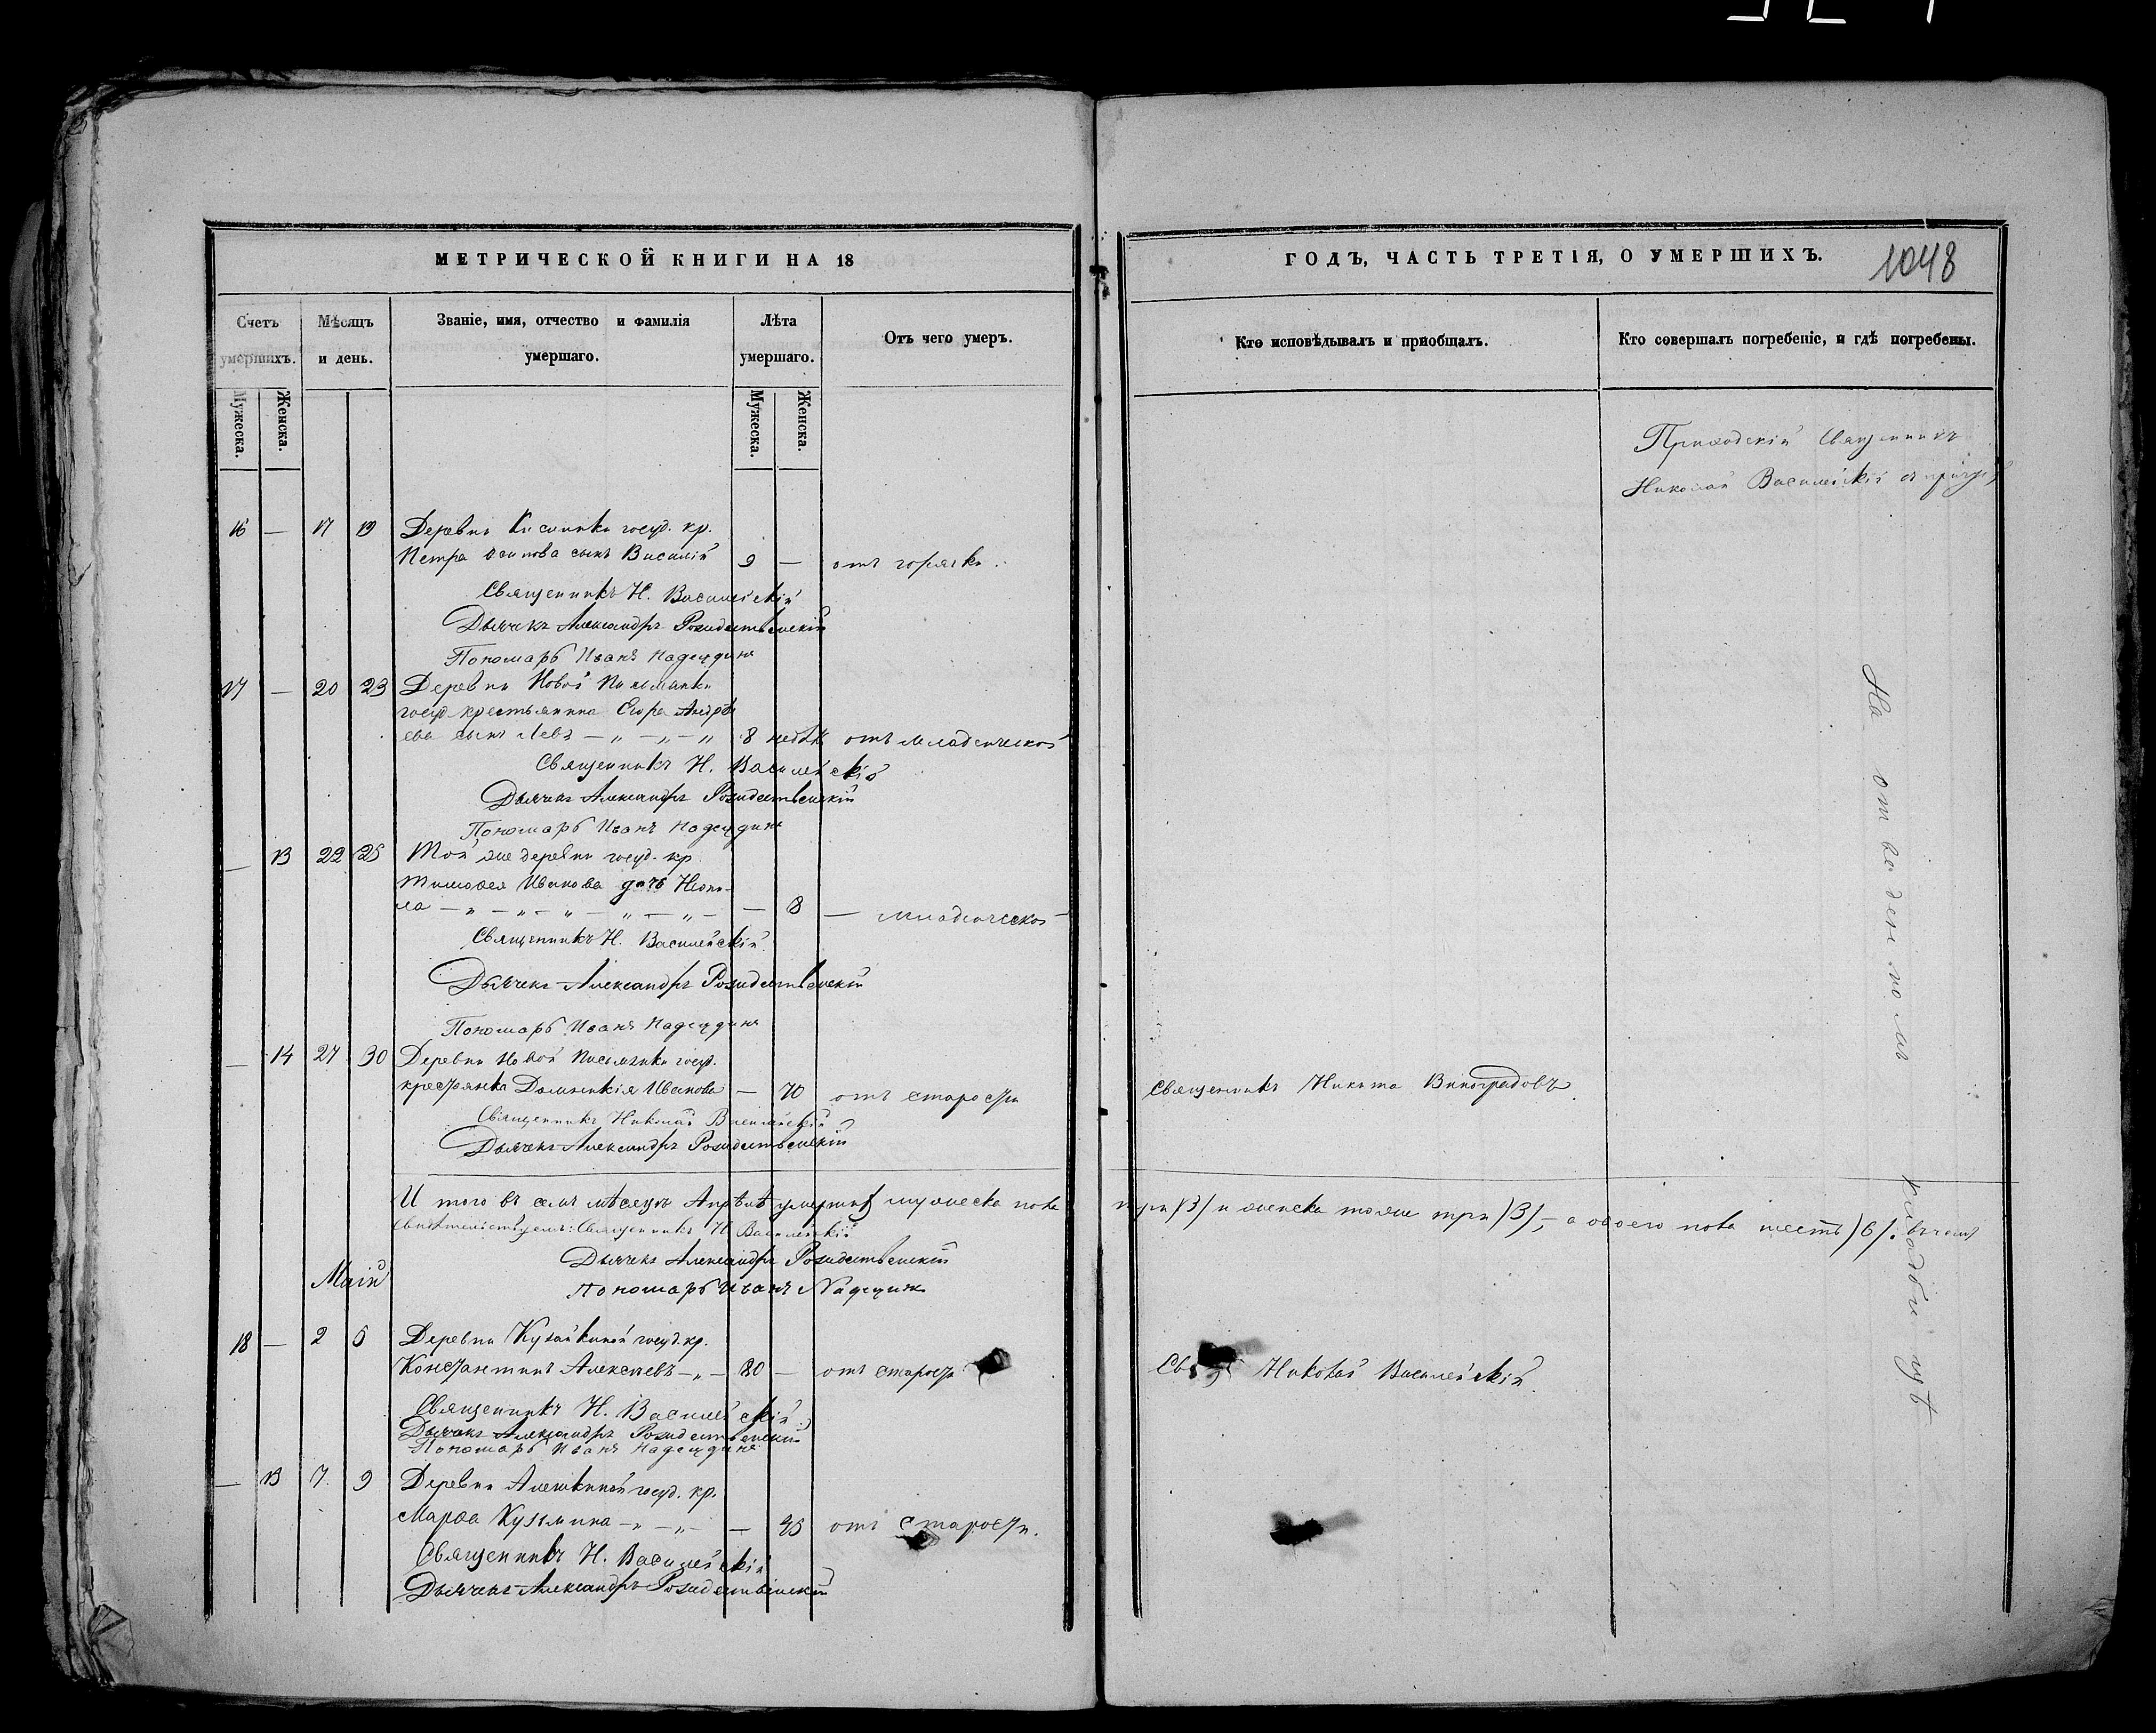 МЕТРИЧЕСКОЙ КНИГИ НА 18
Счетъ умершихъ.
Мѣсяцъ и день.
Званіе, имя, отчество и фамилія умершаго.
Лѣта умершаго.
Отъ чего умеръ.
Мужеска.
Женска.
Мужеска.
Женска.
16 — 17 19 Деревни госуд. кр.
Петра Осипова сынъ Василій 9 — отъ горячки.
Священникъ Н. Василейскій
Дьячекъ Александръ Рождественскій
Пономарь Иванъ Надеждинъ
17 — 20 23 Деревни Новой Письмянки
госуд. крестьянина Егора Андрѣ
ева сынъ Левъ — „ — „ — „ 8 недѣль отъ младенческой
Священникъ Н. Василейскій
Дьячекъ Александръ Рождественскій
Пономарь Иванъ Надеждинъ
— 13 22 25 Той же деревни госуд. кр.
Тимофея Иванова дочь Неони-
ла — „ — „ — „ — „ — „ — — 8 — младенческой
Священникъ Н. Василейскій
Дьячекъ Александръ Рождественскій
Пономарь Иванъ Надеждинъ
— 14 27 30 Деревни Новой Письмянки госуд.
крестьянка Домникія Иванова — 70 отъ старости
Священникъ Николай Василейскій
Дьячекъ Александръ Рождественскій
И того въ семъ мѣсяцѣ Апрѣлѣ умершихъ мужеска пола
свидѣтельствуемъ: Священникъ Н. Василейскій
Дьячекъ Александръ Рождественскій
Пономарь Иванъ Надеждинъ
Маій
18 — 2 5 Деревни Кузайкиной госуд. кр.
Константинъ Алексѣевъ — „ — 80 — отъ старости
Священникъ Н. Василейскій
Дьячекъ Александръ Рождественскій
Пономарь Иванъ Надеждинъ
— 13 7 9 Деревни Алешкиной госуд. кр.
Марѳа Кузмина — „ — „ — — 45 отъ старости.
Священникъ Н. Василейскій
Дьячекъ Александръ Рождественскій
ГОДЪ, ЧАСТЬ ТРЕТІЯ, О УМЕРШИХЪ.
1048
Кто исповѣдывалъ и пріобщалъ.
Кто совершалъ погребеніе, и гдѣ погребены.
Приходскій Священникъ
Николай Василейскій съ причтомъ
На отведенномъ кладбищѣ
Священникъ Никита Виноградовъ.
три /3/ и женска тоже три /3/, — а обоего пола шесть /6/. въ чемъ
Николай Василейскій.